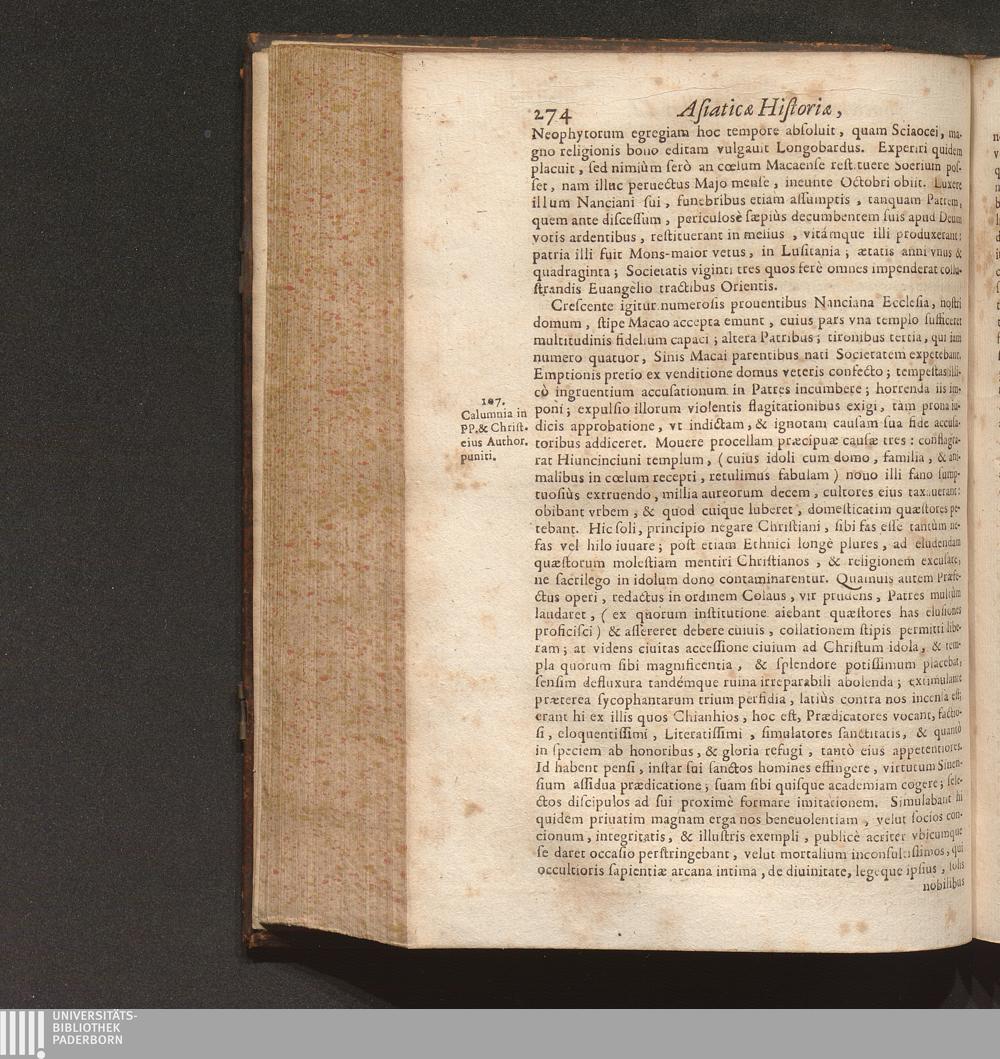 274 Aſiaticæ Hiſtoriæ,
Neophytorum egregiam hoc tempore abſoluit, quam Sciaocei, ma-
gno religionis bono editam vulgauit Longobardus. Experiri quidem
placuit, ſed nimiùm ſerò an cœlum Macaenſe reſtituere Soerium poſ-
ſet, nam illuc peruectus Majo menſe, ineunte Octobri obiit. Luxere
illum Nanciani ſui, funebribus etiam aſſumptis, tanquam Patrem,
quem ante diſceſſum, periculosè ſæpiùs decumbentem ſuis apud Deum
votis ardentibus, reſtituerant in melius, vitámque illi produxerant:
patria illi fuit Mons-maior vetus, in Luſitania; ætatis anni vnus &
quadraginta; Societatis viginti tres quos ferè omnes impenderat collu-
ſtrandis Euangelio tractibus Orientis.
Creſcente igitur numeroſis prouentibus Nanciana Eccleſia, noſtri
domum, ſtipe Macao accepta emunt, cuius pars vna templo ſufficeret
multitudinis fidelium capaci; altera Patribus; tironibus tertia, qui iam
numero quatuor, Sinis Macai parentibus nati Societatem expetebant.
Emptionis pretio ex venditione domus veteris confecto; tempeſtas illi-
cò ingruentium accuſationum in Patres incumbere; horrenda iis im-
poni; expulſio illorum violentis flagitationibus exigi, tàm prona iu-
dicis approbatione, vt indictam, & ignotam cauſam ſua fide accuſa-
toribus addiceret. Mouere procellam præcipuæ cauſæ tres: conflagra-
rat Hiuncinciuni templum, (cuius idoli cum domo, familia, & ani-
malibus in cœlum recepti, retulimus fabulam) nouo illi fano ſump-
tuoſiùs extruendo, millia aureorum decem, cultores eius taxauerant:
obibant vrbem, & quod cuique luberet, domeſticatim quæſtores pe-
tebant. Hic ſoli, principio negare Chriſtiani, ſibi fas eſſe tantùm ne-
fas vel hilo iuuare; poſt etiam Ethnici longè plures, ad eludendam
quæſtorum moleſtiam mentiri Chriſtianos, & religionem excuſare,
ne ſacrilego in idolum dono contaminarentur. Quamuis autem Præfe-
ctus operi, redactus in ordinem Colaus, vir prudens, Patres multùm
laudaret, (ex quorum inſtitutione aiebant quæſtores has eluſiones
proficiſci) & aſſereret debere cuiuis, collationem ſtipis permitti libe-
ram; at videns ciuitas acceſſione ciuium ad Chriſtum idola, & tem-
pla quorum ſibi magnificentia, & ſplendore potiſſimum placebat,
ſenſim defluxura tandémque ruina irreparabili abolenda; extimulante
præterea ſycophantarum trium perfidia, latiùs contra nos incenſa eſt;
erant hi ex illis quos Chianhios, hoc eſt, Prædicatores vocant, factio-
ſi, eloquentiſſimi, Literatiſſimi, ſimulatores ſanctitatis, & quantò
in ſpeciem ab honoribus, & gloria refugi, tantò eius appetentiores.
Id habent penſi, inſtar ſui ſanctos homines effingere, virtutum Sinen-
ſium aſſidua prædicatione; ſuam ſibi quiſque academiam cogere; ſele-
ctos diſcipulos ad ſui proximè formare imitationem. Simulabant hi
quidem priuatim magnam erga nos beneuolentiam, velut ſocios con-
cionum, integritatis, & illuſtris exempli, publicè acriter vbicumque
ſe daret occaſio perſtringebant, velut mortalium inconſultiſſimos, qui
occultioris ſapientiæ arcana intima, de diuinitate, legeque ipſius, ſolis
nobilibus
107.
Calumnia in
PP. & Chriſt.
eius Author.
puniti.
UNIVERSITÄTS-
BIBLIOTHEK
PADERBORN